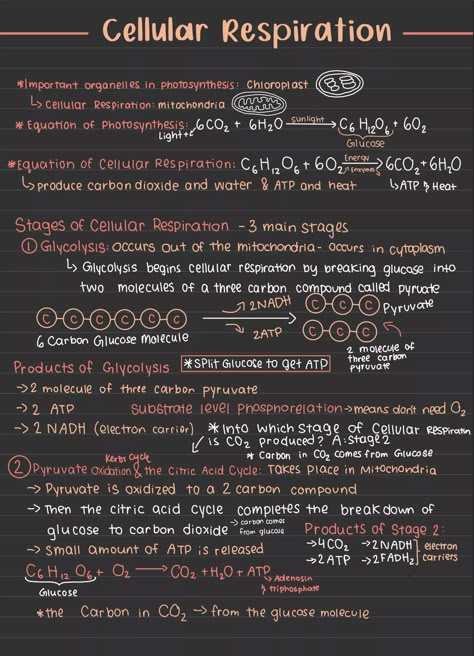 Cellular Respiration
*Important organelles in photosynthesis: Chloroplast
↳ Cellular Respiration: mitochondria
* Equation of Photosynthesis: 6CO2 + 6H2O → C6H12O6 + 6O2
Light+
sunlight
Glucose
*Equation of Cellular Respiration: C6H12O6 + 6O2 → 6CO2+6H2O
Energy
Enzymes
↳ produce carbon dioxide and water & ATP and heat
↳ATP & Heat
Stages of Cellular Respiration - 3 main stages
① Glycolysis: occurs out of the mitochondria- occurs in cytoplasm
↳ Glycolysis begins cellular respiration by breaking glucose into
two molecules of a three carbon compound called pyruate
C-C-C-C-C-C
→ 2NADH
→ 2ATP
C-C-C
C-C-C
Pyruvate
6 Carbon Glucose Molecule
2 molecule of
three carbon
pyruvate
Products of Glycolysis
*Split Glucose to get ATP
→2 molecule of three carbon pyruvate
→ 2 ATP
Substrate level phosphorelation→means don't need O2
→ 2 NADH (electron carrier)
*Into which stage of Cellular Respiratn
is CO2 produced? A: stage 2
* Carbon in CO2 comes from Glucose
Kerbs Cycle
② Pyruvate Oxidation & the Citric Acid Cycle: Takes place in Mitochondria
→ Pyruvate is oxidized to a 2 carbon compound
→ Then the citric acid cycle completes the breakdown of
glucose to carbon dioxide
→ carbon comes
from glucose
→ Small amount of ATP is released
Products of Stage 2:
→4CO2 →2NADH
→2ATP →2FADH2
electron
carriers
C6H12O6 + O2 → CO2+H2O+ATP
Glucose
↳ Adenosin
triphosphate
*the Carbon in CO2 → from the glucose molecule